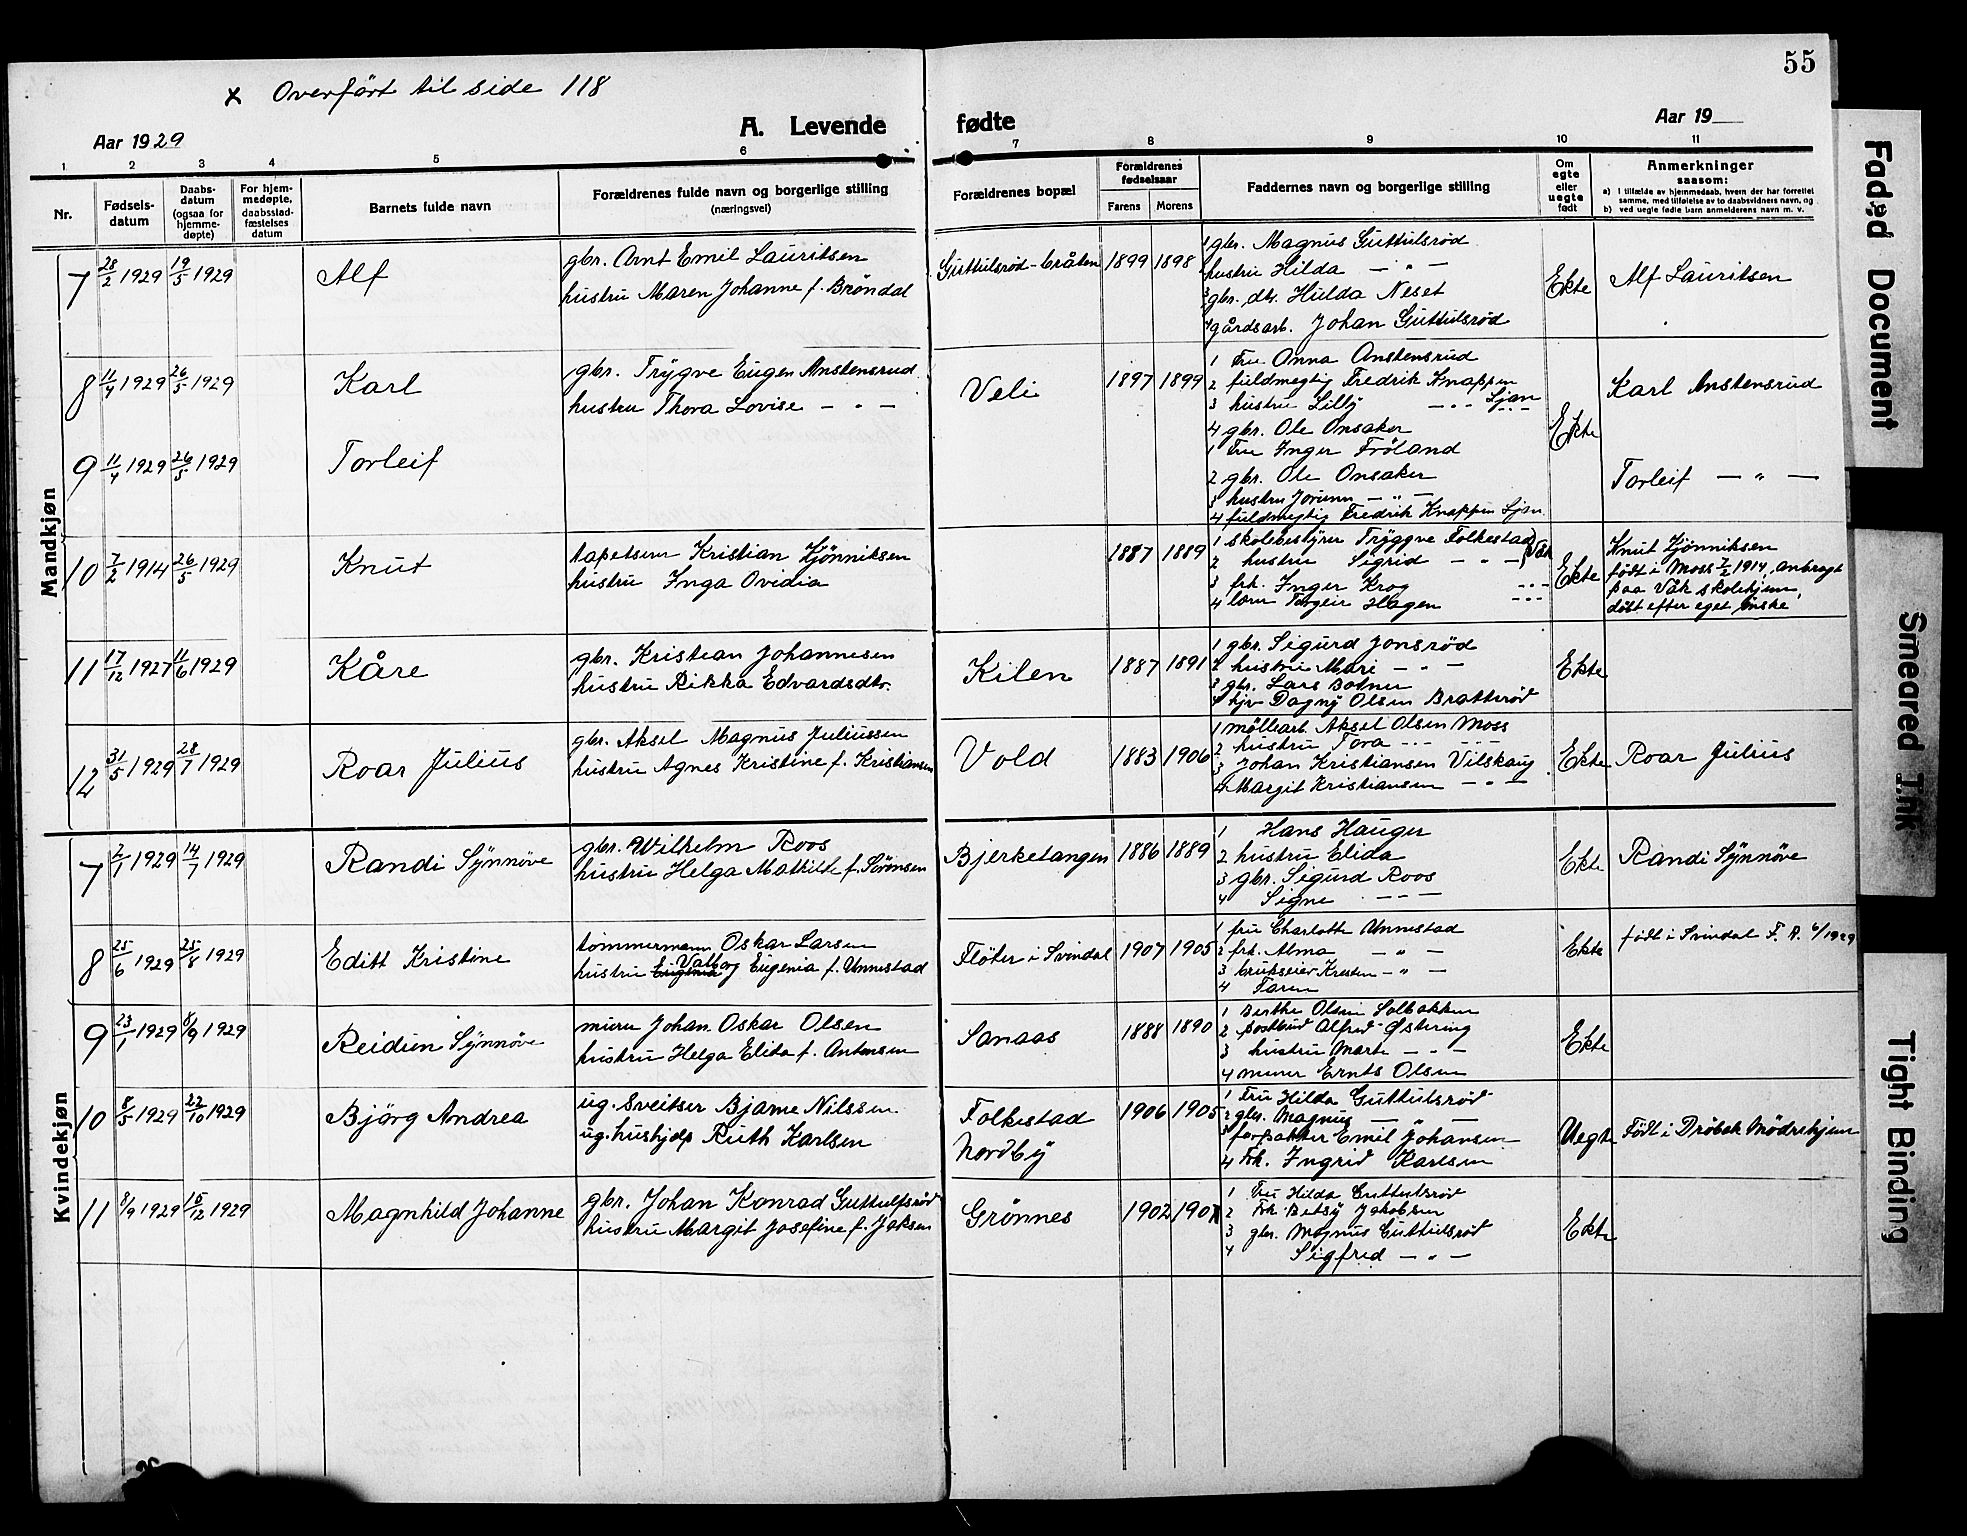 55
x Overført til side 118
Aar 1929
A. Levende fødte
Aar 19
1 2 3 4 5 6 7 8 9 10 11
Nr.
Fødsels-
datum
Daabs-
datum
(ogsaa for
hjemme-
døpte)
For hjem-
medøpte,
daabsstad-
fæstelses
datum
Barnets fulde navn
Forældrenes fulde navn og borgerlige stilling
(næringsvei)
Forældrenes bopæl
Forældrenes
fødselsaar
Farens Morens
Faddernes navn og borgerlige stilling
Om
egte
eller
uegte
født
Anmerkninger
saasom:
a) I tilfælde av hjemmedaab, hvem der har forrettet
samme, med tilføielse av to daabsvidners navn, og
b) ved uegte fødte barn anmelderens navn m. v.
Mandkjøn
7 28/2 1929 19/5 1929 Alf
gbr. Arnt Emil Lauritsen
hustru Maren Johanne f. Brøndal
Guttulsrød-bråten 1899 1898
1 gbr. Magnus Guttulsrød
hustru Hilda — " —
3 gbr. dtr. Hulda Neset
4 gårdsarb. Johan Guttulsrød
Ekte Alf Lauritsen
8 11/4 1929 26/5 1929 Karl
gbr. Trygve Eugen Anstensrud
hustru Thora Lovise — " —
Veli 1897 1899
1 Fru Anna Anstensrud
2 fuldmegtig Fredrik Knappen
3 hustru Lilly — " — Ljan
4 gbr. Ole Onsaker
Ekte Karl Anstensrud
9 11/4 1929 26/5 1929 Torleif
1 Fru Inger Frøland
2 gbr. Ole Onsaker
3 hustru Jorunn — " —
4 fuldmegtig Fredrik Knappen Ljan
Torleif — " —
10 7/2 1914 26/5 1929 Knut
tapetserer Kristian Kjønniksen
hustru Inga Ovidia
1887 1889
1 skolebestyrer Tryggve Folkestad Våk
2 hustru Sigrid — " —
3 frk. Inger Krog - - -
4 lærer Torgeir Hagen - - -
Ekte
Knut Kjønniksen
født i Moss 7/2 1914, anbragt
paa Våk skolehjem,
døbt efter eget ønske
11 17/12 1927 11/6 1929 Kåre
gbr. Kristian Johannesen
hustru Rikka Edvardsdtr.
Kilen 1887 1891
1 gbr. Sigurd Jonsrød
2 hustru Mari — " —
3 gbr. Lars Botner
4 tjv Dagny Olsen Bratterød
Ekte
12 31/5 1929 28/7 1929 Roar Julius
gbr. Aksel Magnus Juliussen
hustru Agnes Kristine f. Kristiansen
Vold 1883 1906
1 møllearb. Aksel Olsen Moss
2 hustru Tora - - -
3 Johan Kristiansen Vilskaug
4 Margit Kristiansen — " —
Ekte Roar Julius
Kvindekjøn
7 2/1 1929 14/7 1929 Randi Synnøve
gbr. Wilhelm Roos
hustru Helga Mathilde f. Sørensen
Bjerketangen 1886 1889
1 Hans Hauger
2 hustru Elida
3 gbr. Sigurd Roos
4 Signe - - -
Ekte Randi Synnøve
8 25/6 1929 25/8 1929 Edith Kristine
tømmermann Oskar Larsen
hustru Valborg Eugenia f. Unnestad
Fløter i Svindal 1907 1905
1 fru Charlotte Unnestad
2 frk. Alma — " —
3 brukseier Kresten — " —
4 Faren
Ekte født i Svindal F. A. 6/1929
9 23/1 1929 8/9 1929 Reidun Synnøve
murer Johan Oskar Olsen
hustru Helga Elida f. Antonsen
Sanaas 1888 1890
1 Berthe Olsen Solbakken
2 postbud Alfred Østering
3 hustru Marte — " —
4 murer Ernts Olsen
Ekte
10 8/5 1929 22/10 1929 Bjørg Andrea
ug. Sveitser Bjarne Nilssen
ug. hushjelp Ruth Karlsen
Folkestad
Nordby
1906 1905
1 Fru Hilda Guttulsrød
2 gbr. Magnus — —
3 forpakter Emil Johansen
4 Frk. Ingrid Karlsen
Uegte Født i Drøbak Mødrehjem
11 8/9 1929 15/12 1929 Magnhild Johanne
gbr. Johan Konrad Guttulfsrød
hustru Margit Josefine f. Jaksen
Grønnes 1902 1901
1 Fru Hilda Guttulsrød
2 Frk. Betsy Jakobsen
3 gbr. Magnus Guttulsrød
4 Sigfred — " —
Ekte
Faded Document
Smeared Ink
Tight Binding